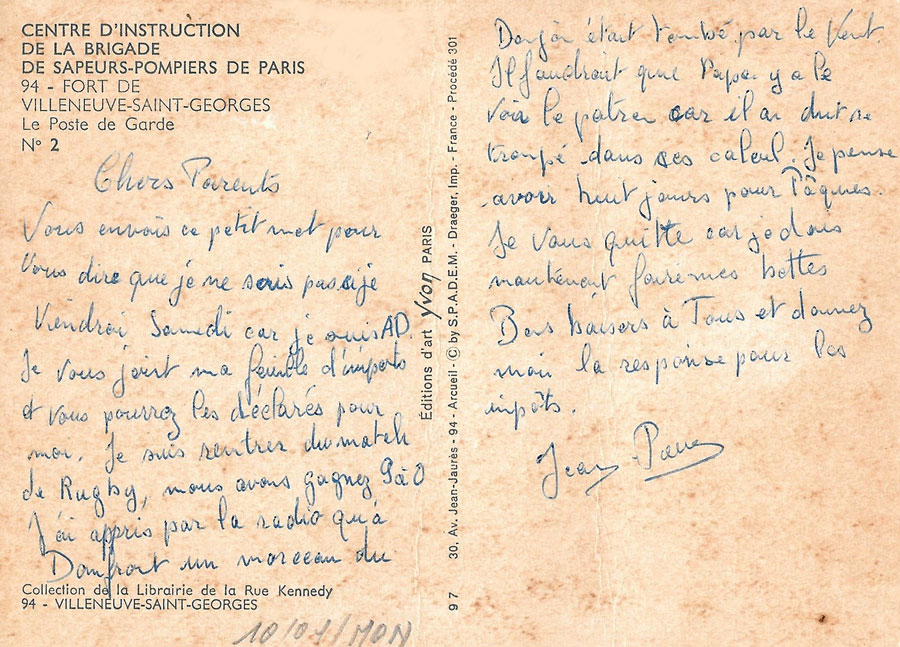 CENTRE D'INSTRUCTION
DE LA BRIGADE
DE SAPEURS-POMPIERS DE PARIS
94 - FORT DE
VILLENEUVE-SAINT-GEORGES
Le Poste de Garde
N° 2
Chers Parents
Vous envois ce petit mot pour
Vous dire que je ne sais pas si je
Viendrai Samedi car je suis AD.
Je vous joint ma feuille d'impots
et vous pourrez les déclarés pour
moi. Je suis rentrer du match
de Rugby, nous avons gagnez 9 à 0
J'ai appris par la radio qu'à
Domfront un morceau du
Collection de la Librairie de la Rue Kennedy
94 - VILLENEUVE-SAINT-GEORGES
10/01/MON
Éditions d'art Yvon PARIS
30, Av. Jean-Jaurès - 94 - Arcueil - © by S.P.A.D.E.M. - Draeger, Imp. - France - Procédé 301
97
Donjon était tombé par le Vent.
Il faudrait que Papa y a le
voir le patron car il a dut se
trompé dans ses calcul. Je pense
avoir huit jours pour Pâques.
Je vous quitte car je dois
maintenant faire mes bottes
Bons baisers à Tous et donnez
moi la response pour les
impôts.
Jean